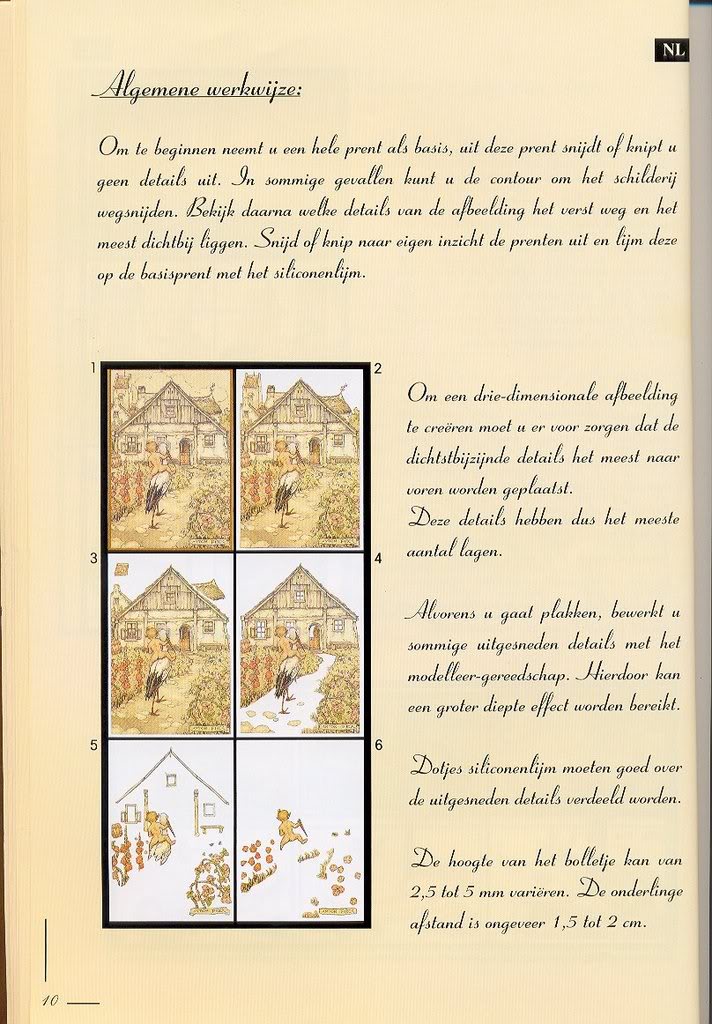 NL
Algemene werkwijze:
Om te beginnen neemt u een hele prent als basis, uit deze prent snijdt of knipt u
geen details uit. In sommige gevallen kunt u de contour om het schilderij
wegsnijden. Bekijk daarna welke details van de afbeelding het verst weg en het
meest dichtbij liggen. Snijd of knip naar eigen inzicht de prenten uit en lijm deze
op de basisprent met het siliconenlijm.
1
2
3
4
5
6
Om een drie-dimensionale afbeelding
te creëren moet u er voor zorgen dat de
dichtstbijzijnde details het meest naar
voren worden geplaatst.
Deze details hebben dus het meeste
aantal lagen.
Alvorens u gaat plakken, bewerkt u
sommige uitgesneden details met het
modelleer-gereedschap. Hierdoor kan
een groter diepte effect worden bereikt.
Dotjes siliconenlijm moeten goed over
de uitgesneden details verdeeld worden.
De hoogte van het bolletje kan van
2,5 tot 5 mm variëren. De onderlinge
afstand is ongeveer 1,5 tot 2 cm.
10